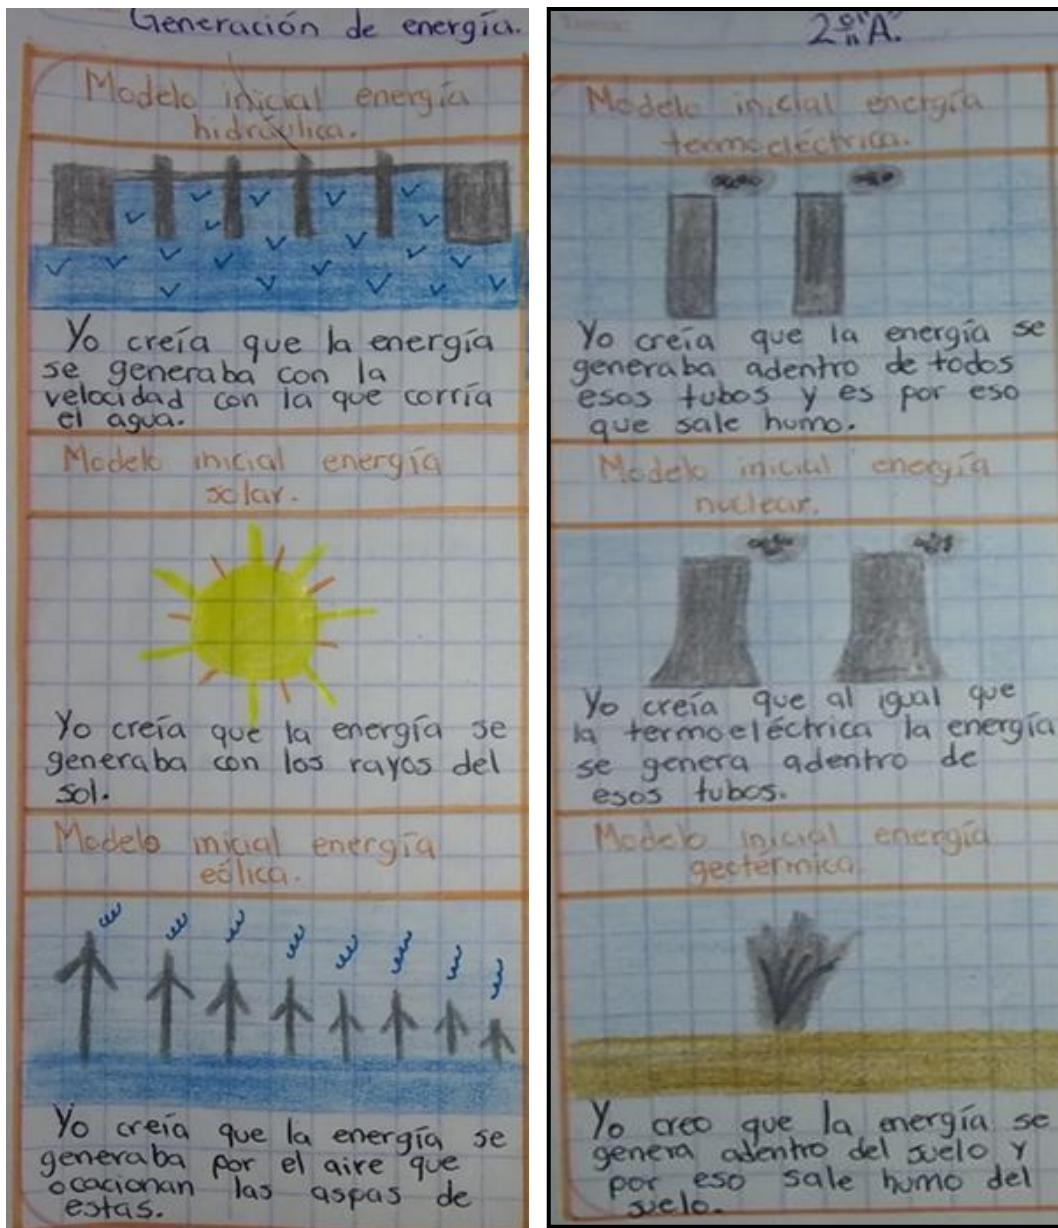 Generación de energía.
Modelo inicial energía
hidráulica.
Yo creía que la energía
se generaba con la
velocidad con la que corría
el agua.
Modelo inicial energía
solar.
Yo creía que la energía se
generaba con los rayos del
sol.
Modelo inicial energía
eólica.
Yo creía que la energía se
generaba por el aire que
ocacionan las aspas de
estas.
2º "A".
Modelo inicial energía
termoeléctrica.
Yo creía que la energía se
generaba adentro de todos
esos tubos y es por eso
que sale humo.
Modelo inicial energía
nuclear.
Yo creía que al igual que
la termoeléctrica la energía
se genera adentro de
esos tubos.
Modelo inicial energía
geotérmica.
Yo creo que la energía se
genera adentro del suelo y
por eso sale humo del
suelo.